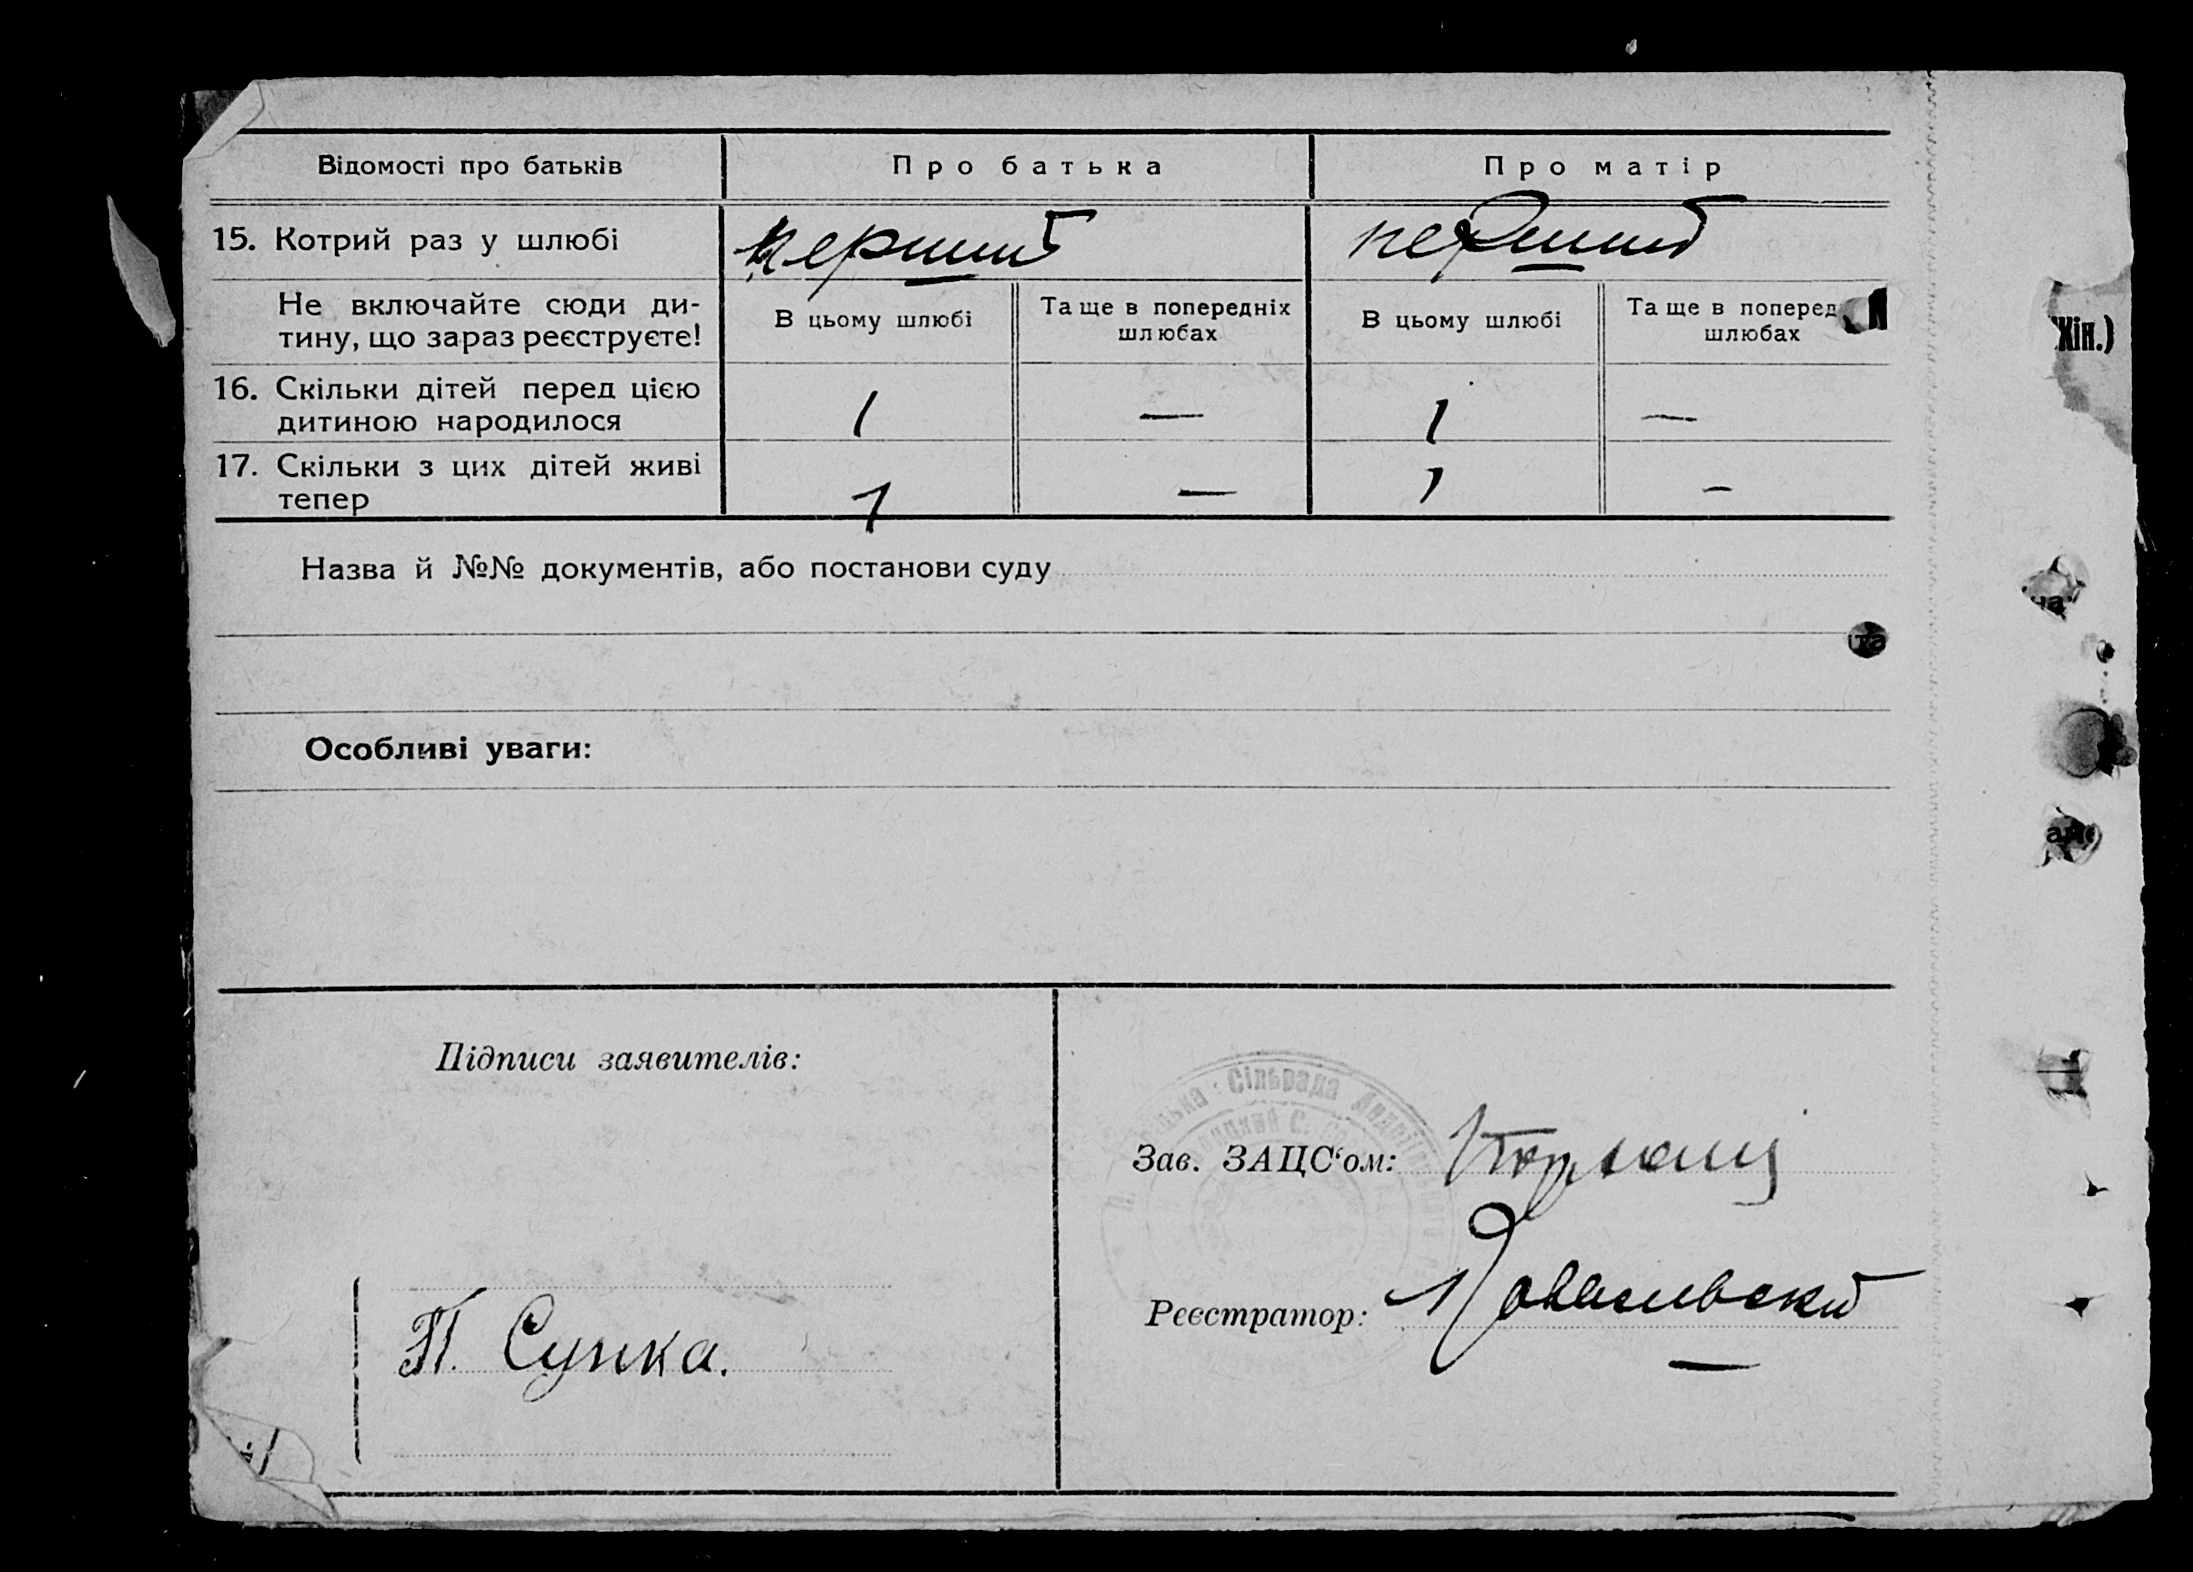 Відомості про батьків Про батька Про матір
15. Котрий раз у шлюбі перший перший
Не включайте сюди ди-
тину, що зараз реєструєте!
В цьому шлюбі Та ще в попередніх
шлюбах
В цьому шлюбі Та ще в поперед
шлюбах
Жін.)
16. Скільки дітей перед цією
дитиною народилося 1 — 1 —
17. Скільки з цих дітей живі
тепер 1 — 1 —
Назва й №№ документів, або постанови суду
Особливі уваги:
Підписи заявителів:
П. Супка.
Сільрада
Зав. ЗАЦС‘ом:
Реєстратор: Ковалевский